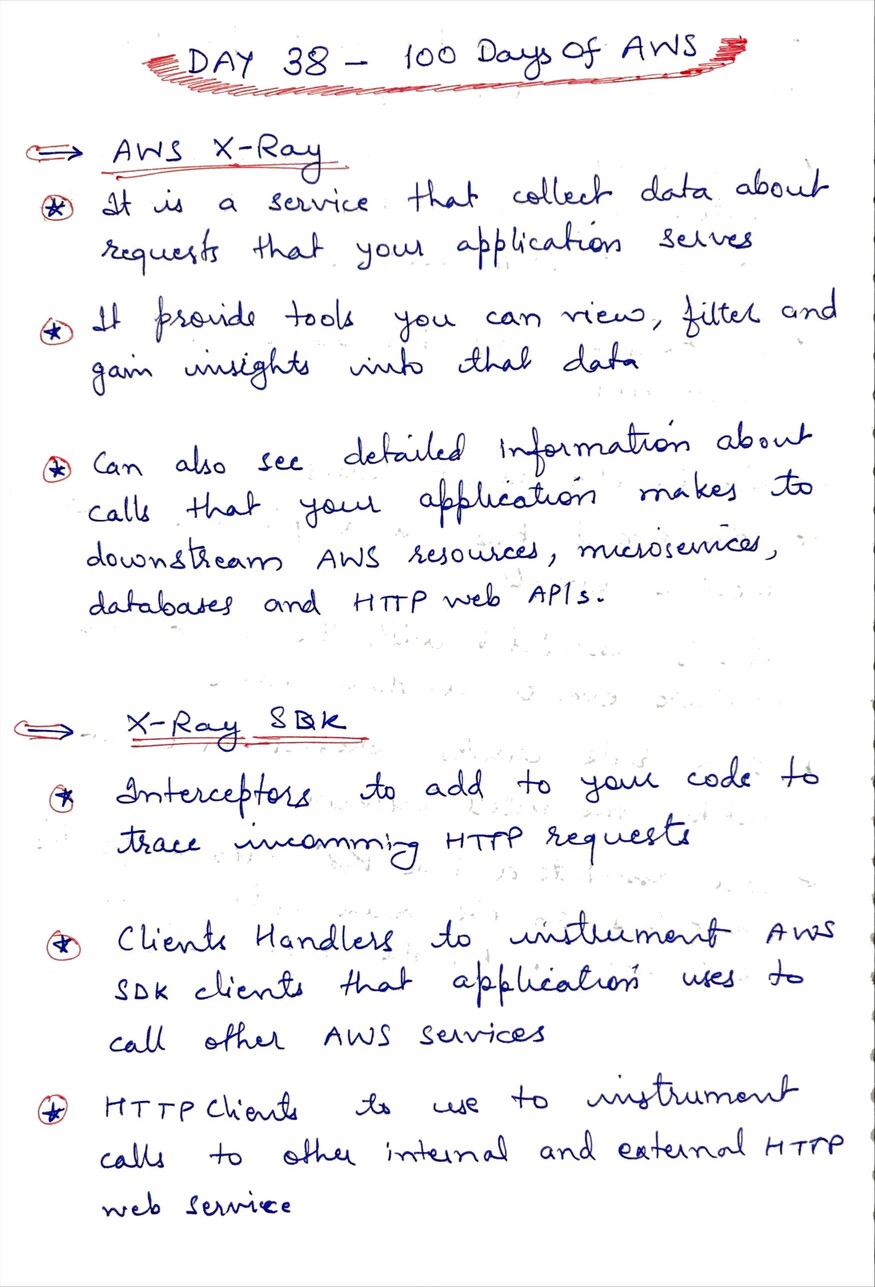 DAY 38 - 100 Days of AWS
⇒ AWS X-Ray
* It is a service that collect data about
requests that your application serves
* It provide tools you can view, filter and
gain insights into that data
* Can also see detailed information about
calls that your application makes to
downstream AWS resources, microservices,
databases and HTTP web APIs.
⇒ X-Ray SDK
* Interceptors to add to your code to
trace incomming HTTP requests
* Clients Handlers to instrument AWS
SDK clients that application uses to
call other AWS services
* HTTP Clients to use to instrument
calls to other internal and external HTTP
web service